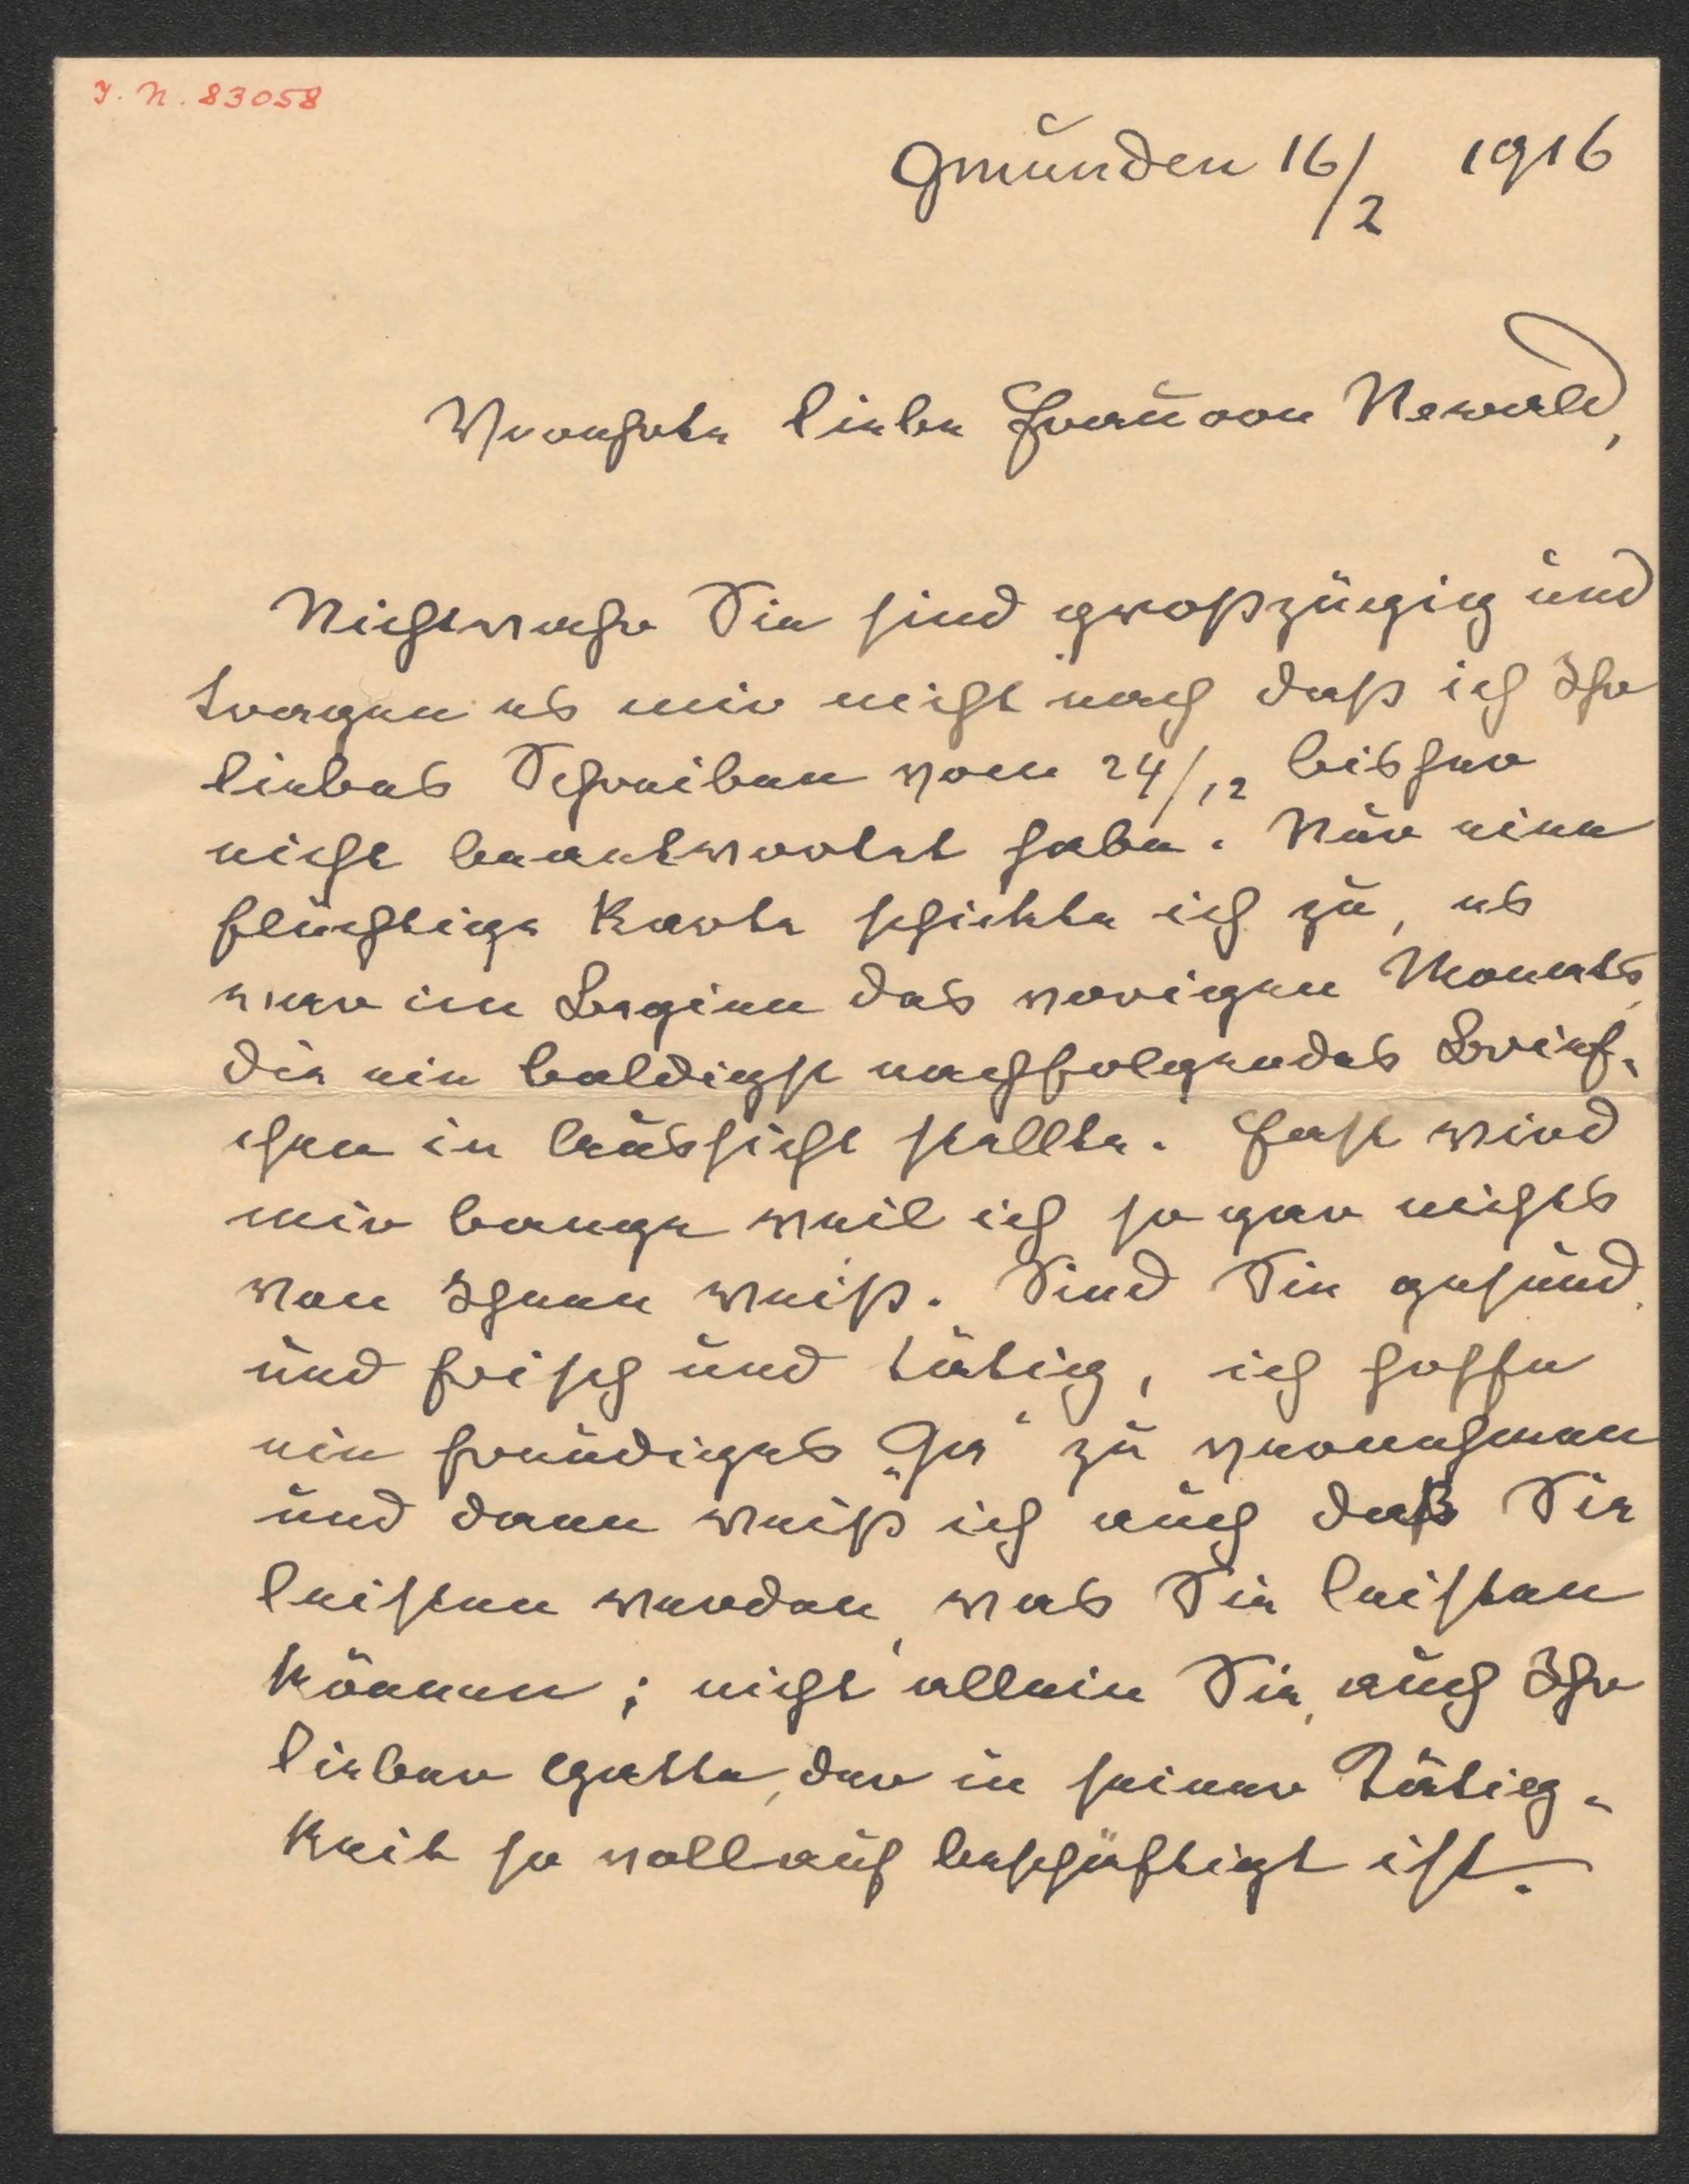 J. N. 83058
Gmunden 16/2 1916
Verehrte liebe Frau von Newald,
Nichtwahr Sie sind großzügig und
tragen es mir nicht nach daß ich Ihr
liebes Schreiben vom 24/12 bisher
nicht beantwortet habe. Nur eine
flüchtige Karte schickte ich zu, es
war im Beginn des vorigen Monats,
die ein baldigst nachfolgendes Brief-
chen in Aussicht stellte. Fast wird
mir bange weil ich so gar nichts
von Ihnen weiß. Sind Sie gesund,
und frisch und tätig, ich hoffe
ein freudiges „Ja“ zu vernehmen
und dann weiß ich auch daß Sie
leisten werden, was Sie leisten
können; nicht allein Sie, auch Ihr
lieber Gatte, der in seiner Tätig-
keit so vollauf beschäftigt ist.